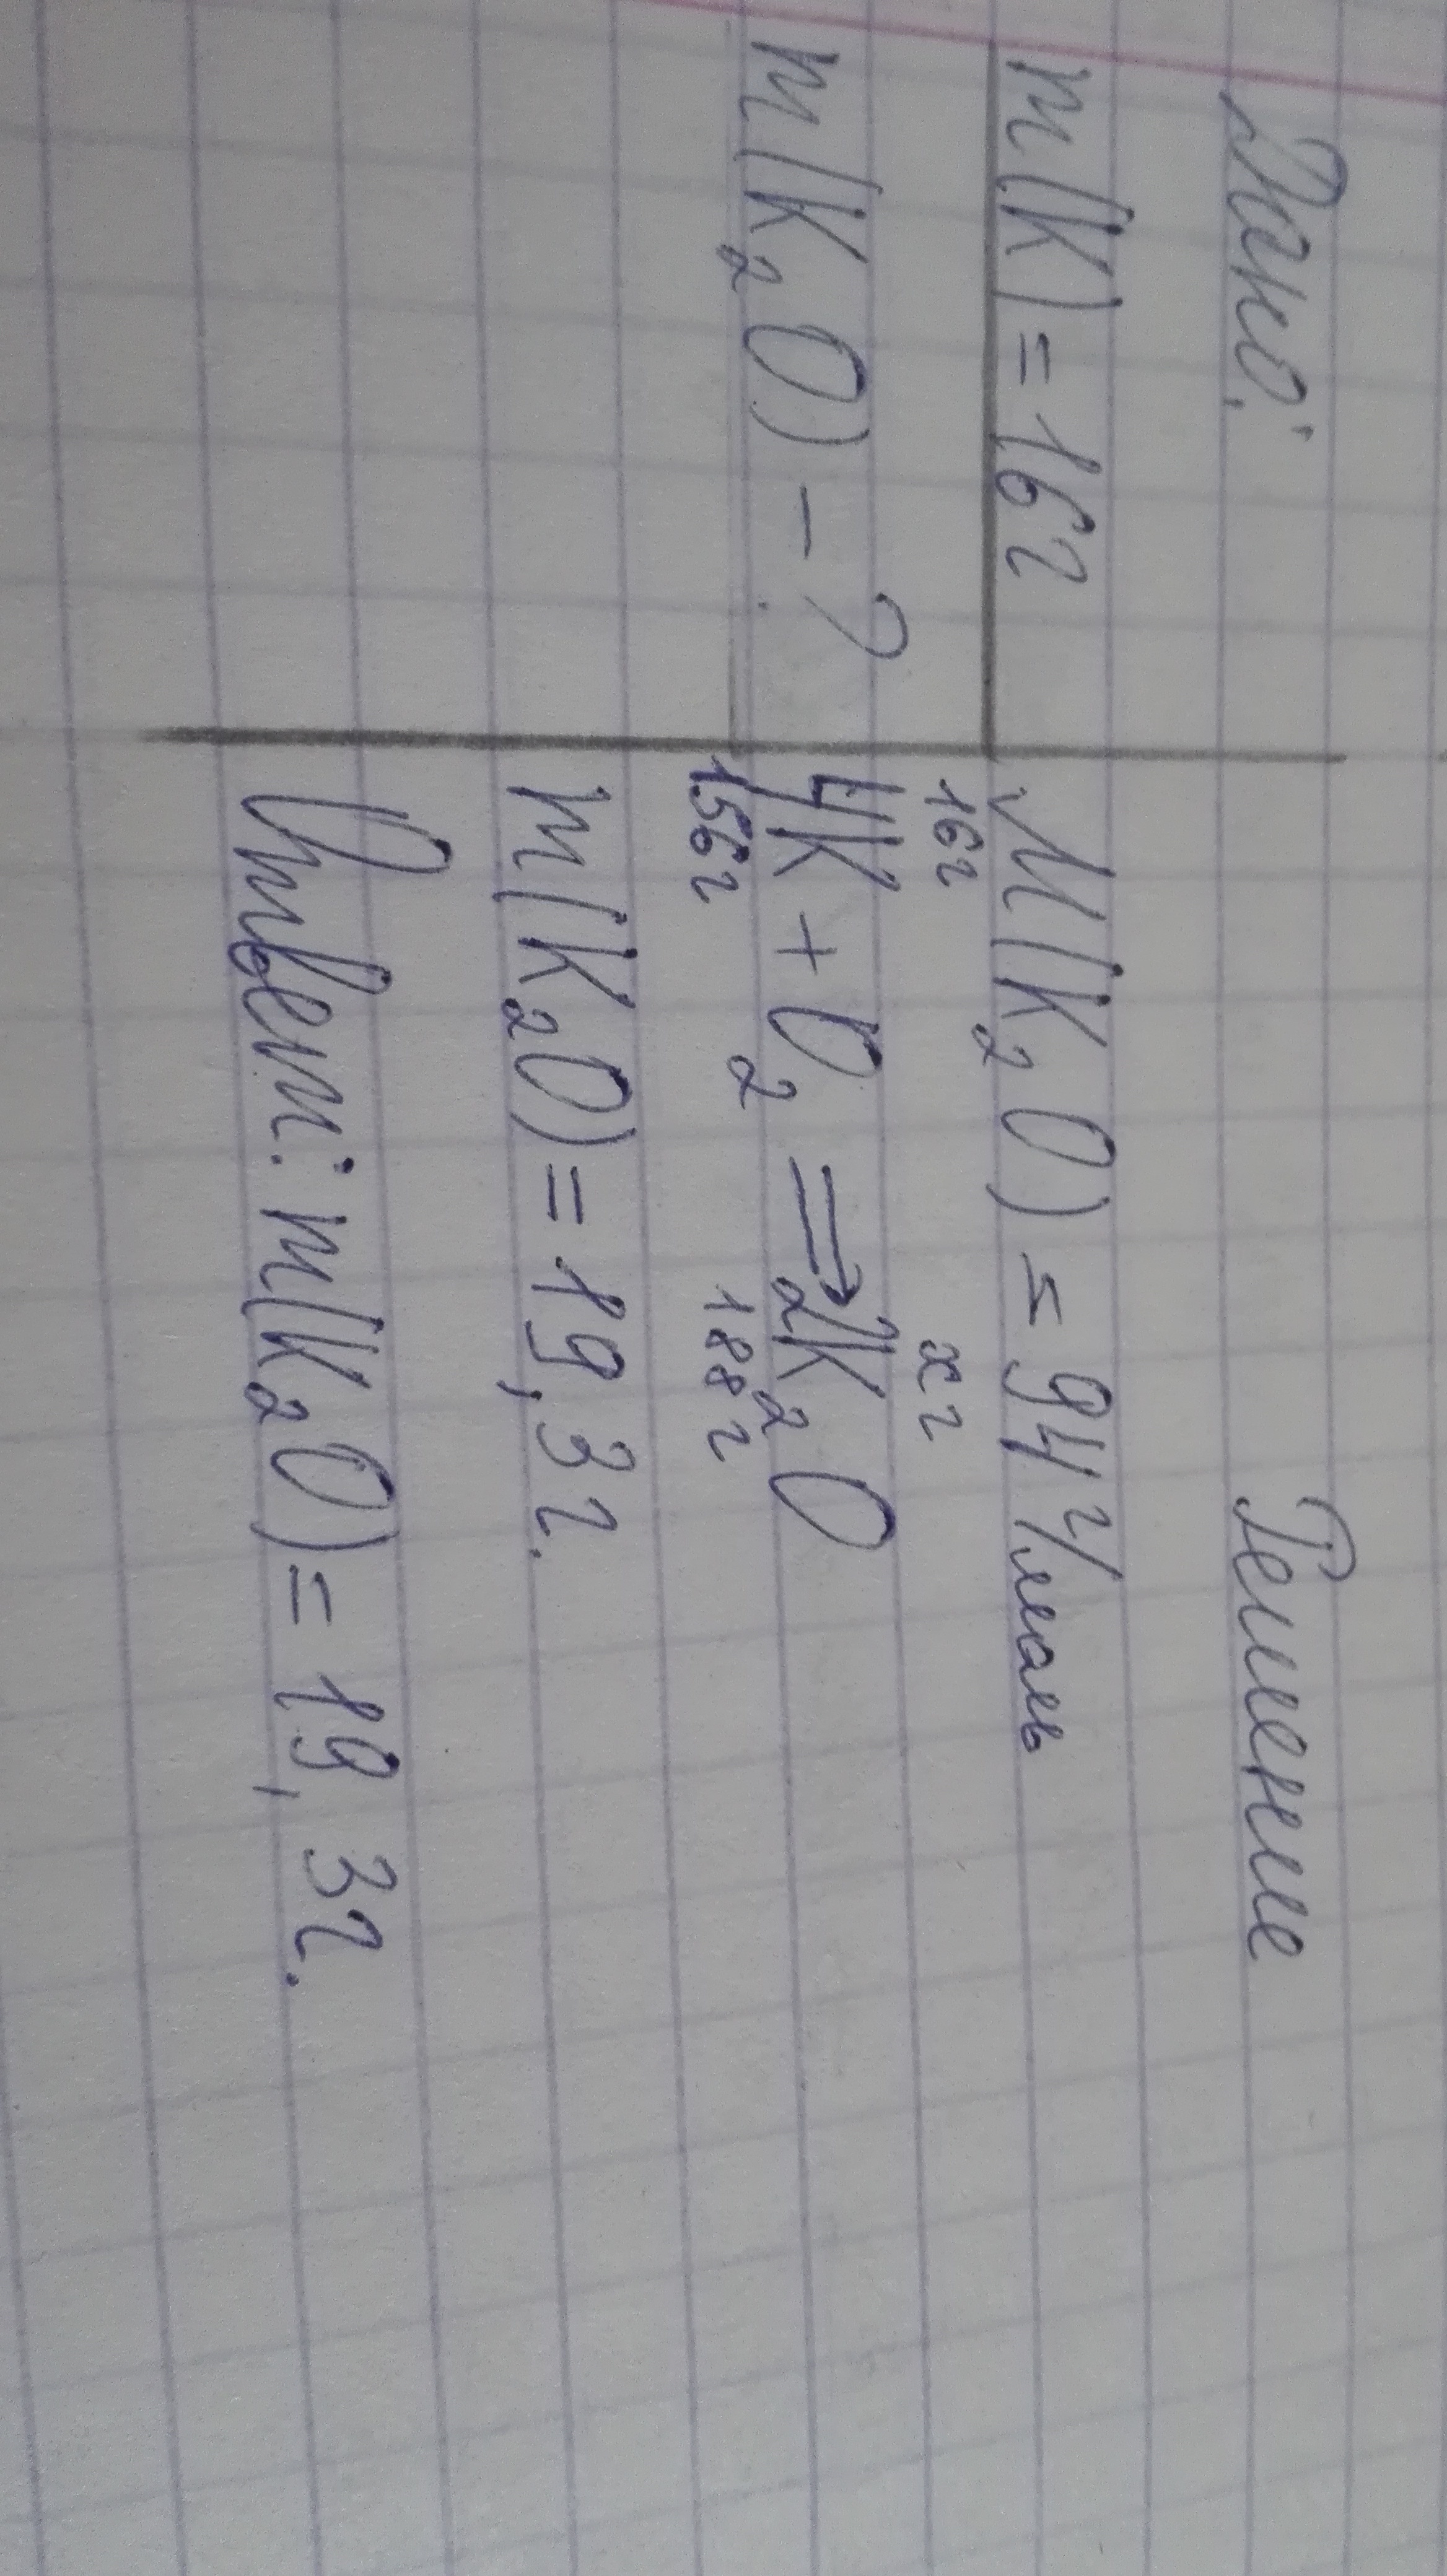 Дано:
m(K)=16г
m(K₂O)-?
Решение
M(K₂O)=94г/моль
16г xг
4K+O₂⇒2K₂O
156г 188г
m(K₂O)=19,3г.
Ответ: m(K₂O)=19,3г.